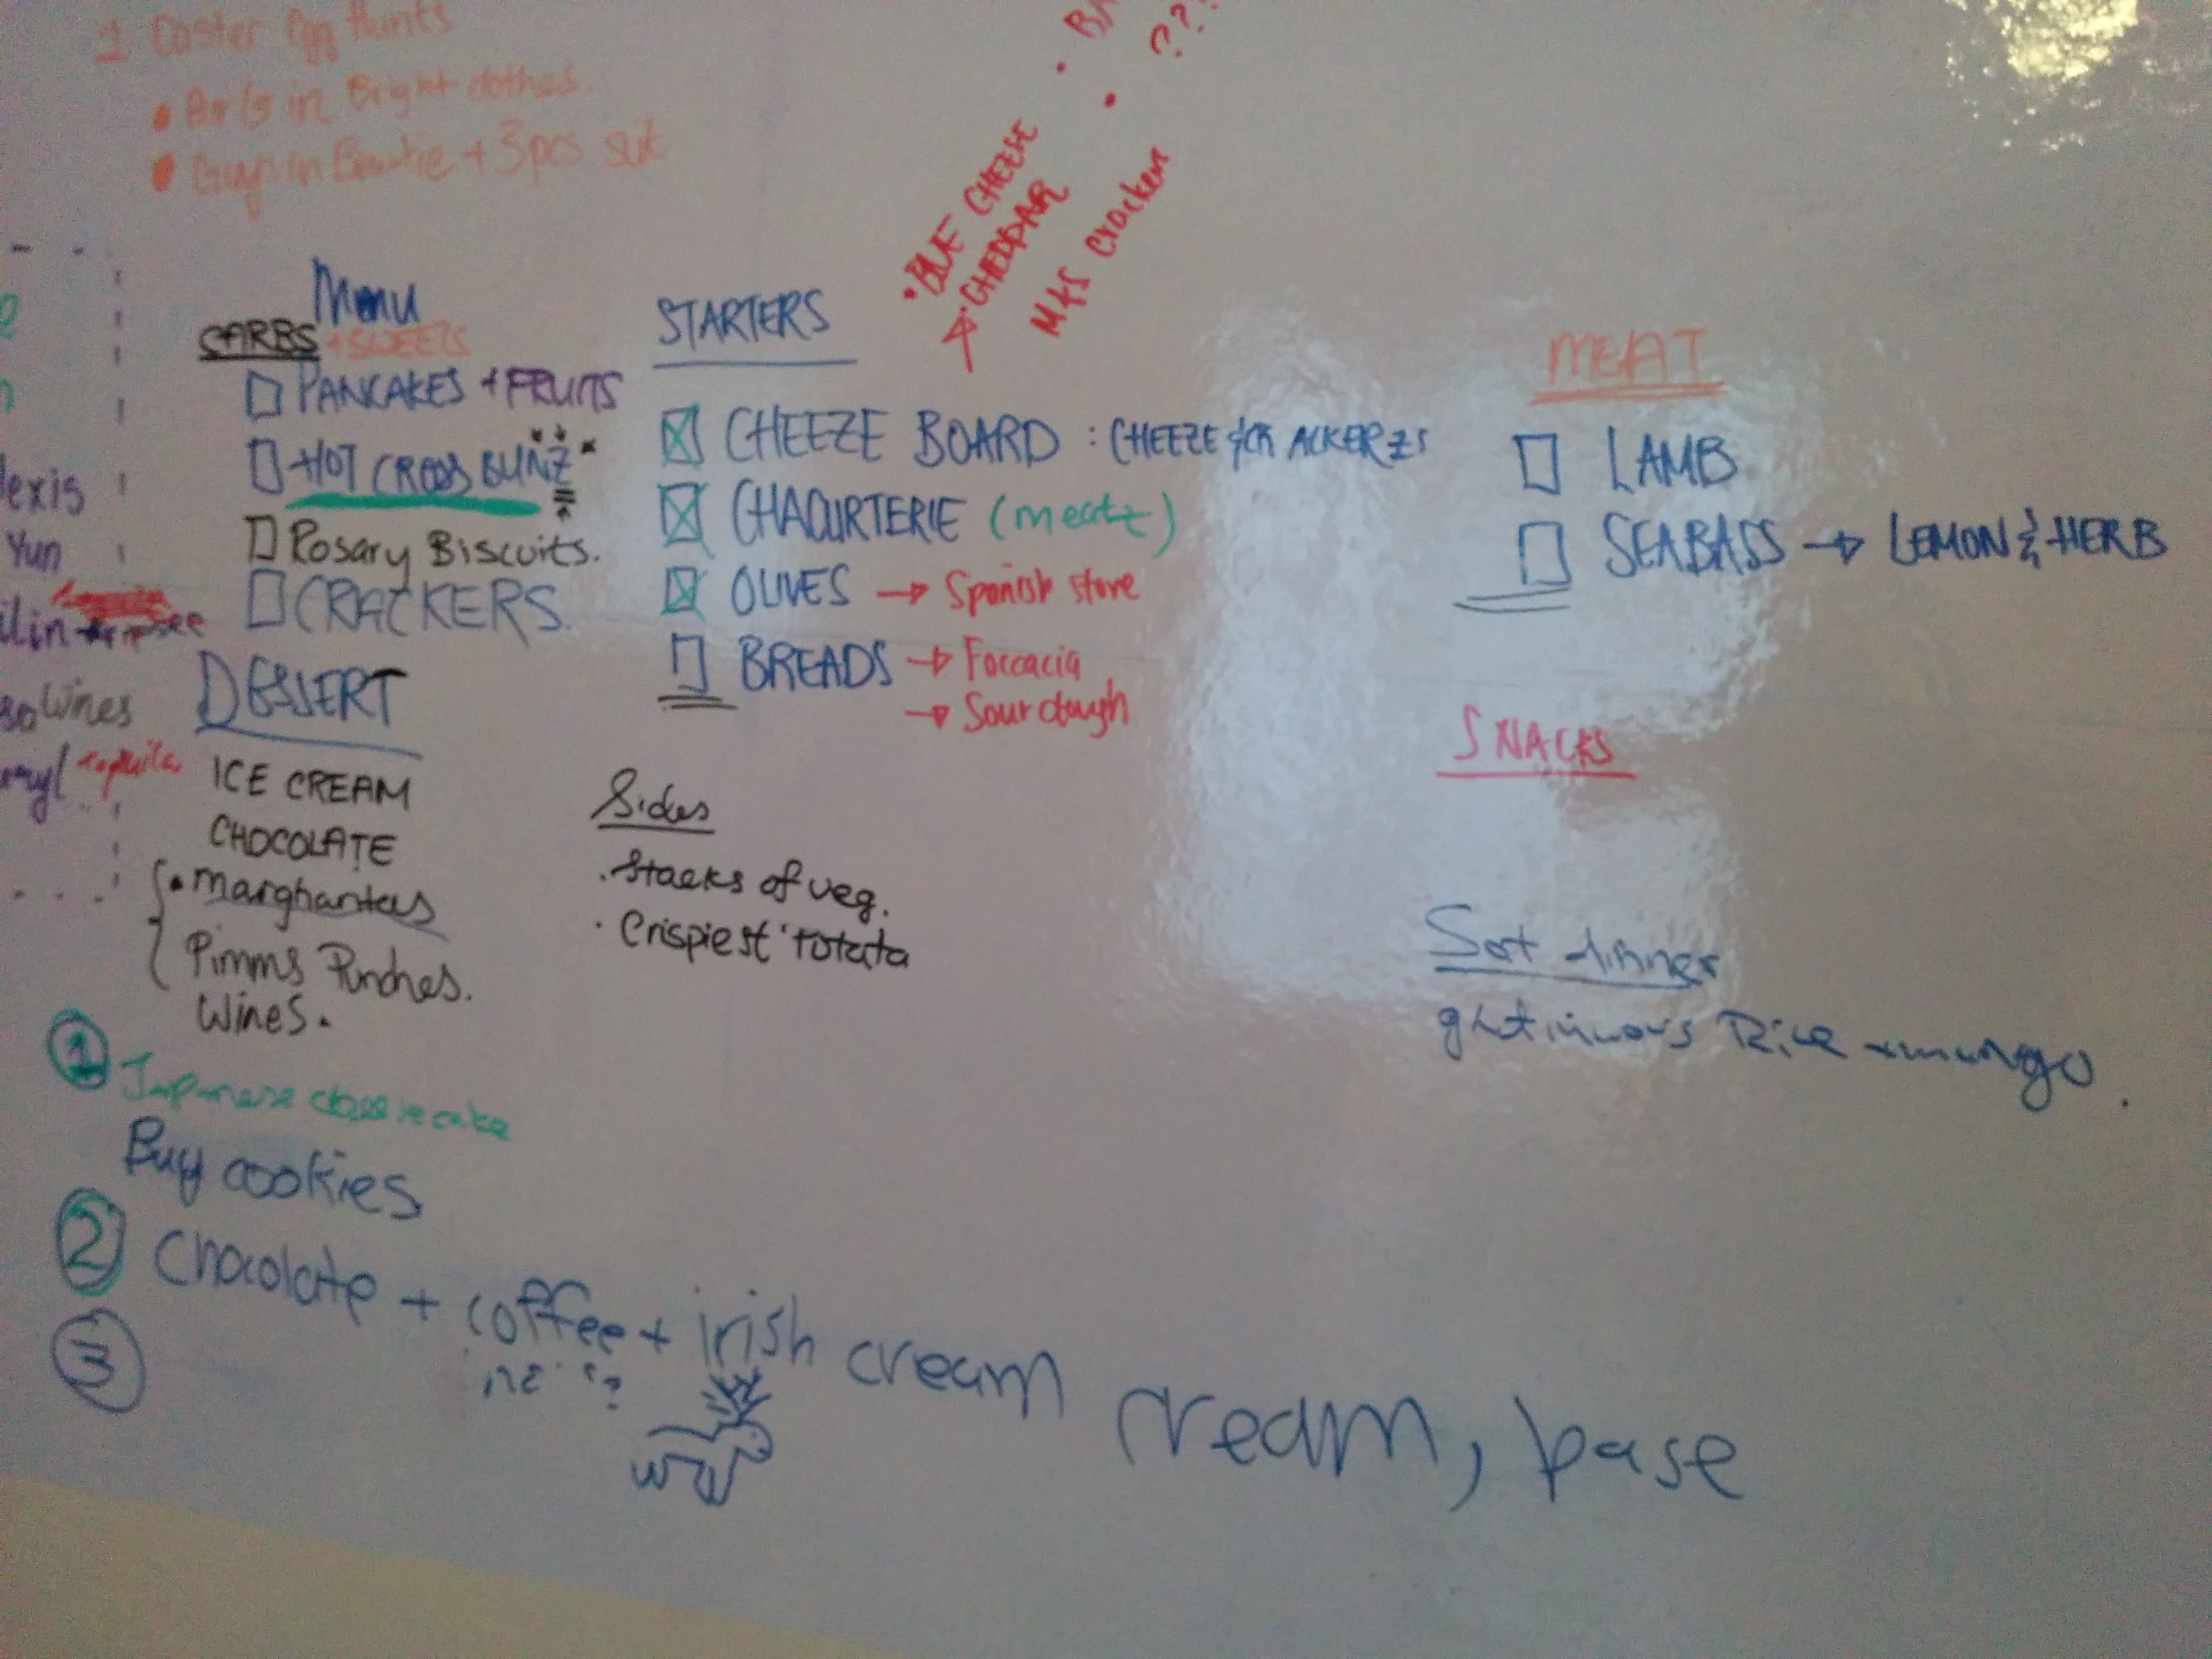 1 Easter Egg Hunts
• Girls in Bright clothes.
• Guys in Bowtie + 3pcs suit
???
• BLUE CHEESE
• CHEDDAR
M&S Cracker
Menu
CARBS + SWEETS
PANCAKES + FRUITS
HOT CROSS BUNZ
Rosary Biscuits.
CRACKERS
lexis
Yun
ilin
Wines
DESSERT
ICE CREAM
CHOCOLATE
• Margharitas
Pimms Punches.
Wines.
STARTERS
CHEEZE BOARD : CHEEZE & CRACKERZS
CHACURTERIE (meatz)
OLIVES → Spanish store
BREADS → Foccacia
→ Sourdough
Sides
• Stacks of veg.
• Crispiest Potata
MEAT
LAMB
SEABASS → LEMON & HERB
SNACKS
Sat dinner
glutinuous Rice + mango.
1 Japanese cheesecake
Buy cookies
2 Chocolate + coffee + irish cream
3
cream, base